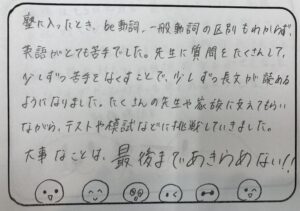 塾に入ったとき、be動詞、一般動詞の区別もわからず、
英語がとても苦手でした。先生に質問をたくさんして、
少しずつ苦手をなくすことで、少しずつ長文が読める
ようになりました。たくさんの先生や家族に支えてもらい
ながら、テストや模試などに挑戦していきました。
大事なことは、最後まであきらめない!!